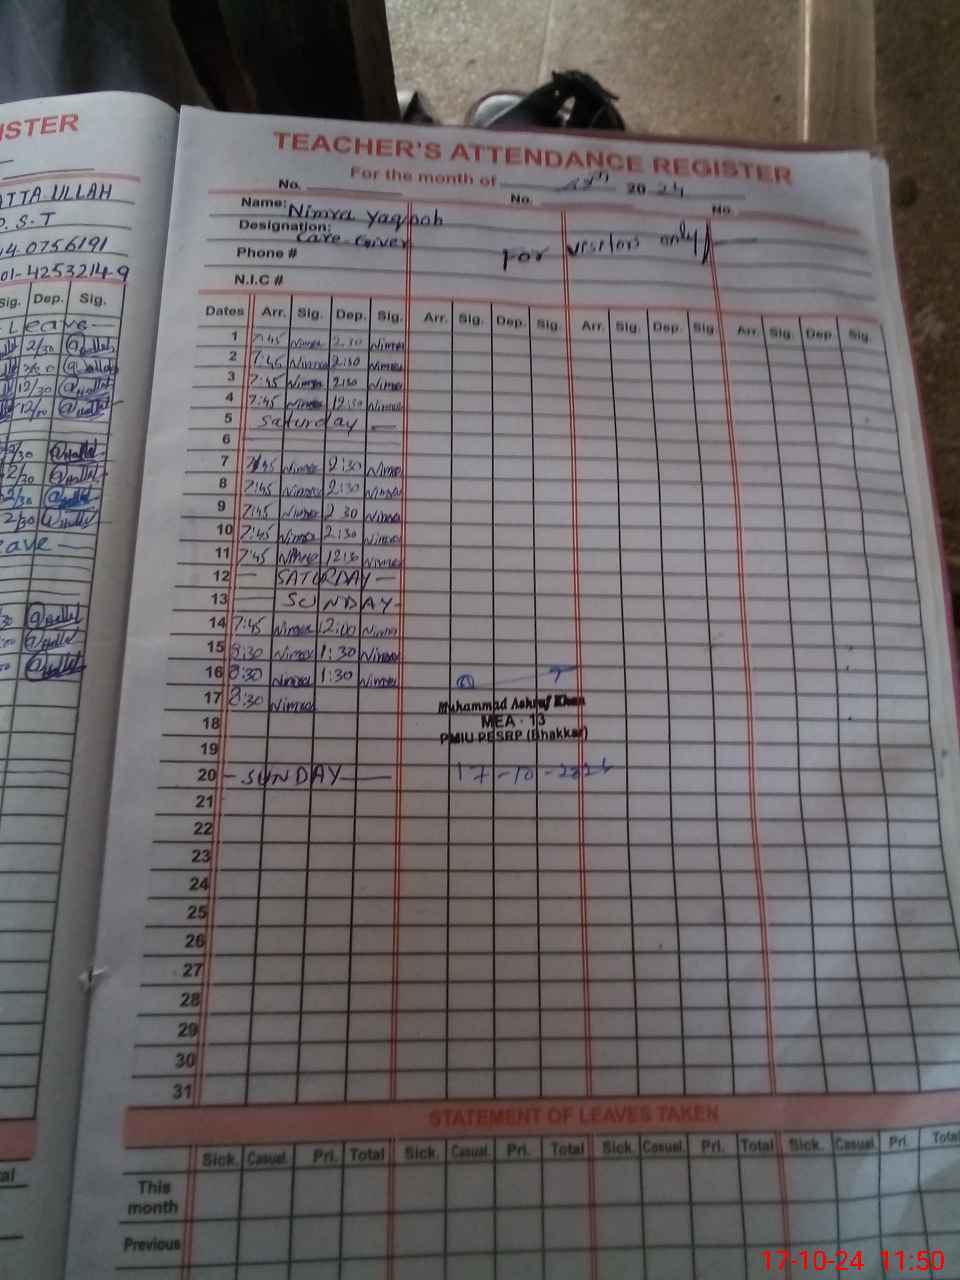 ISTER
ATTA ULLAH
P.S.T
Sig. Dep. Sig.
Leave
TEACHER'S ATTENDANCE REGISTER
For the month of 2024
No. No. No.
Name: Nimra Yaqoob
Designation: Care Giver For visitors only
Phone #
N.I.C #
Dates Arr. Sig. Dep. Sig. Arr. Sig. Dep. Sig. Arr. Sig. Dep. Sig. Arr. Sig. Dep. Sig.
1 7:45 Nimra 2:30 Nimra
2 7:45 Nimra 2:30 Nimra
3 7:45 Nimra 2:30 Nimra
4 7:45 Nimra 12:30 Nimra
5 Saturday
6
7 7:45 Nimra 2:30 Nimra
8 7:45 Nimra 2:30 Nimra
9 7:45 Nimra 2:30 Nimra
10 7:45 Nimra 2:30 Nimra
11 7:45 Nimra 12:30 Nimra
12 — SATURDAY —
13 — SUNDAY —
14 7:45 Nimra 12:00 Nimra
15 8:30 Nimra 1:30 Nimra
16 8:30 Nimra 1:30 Nimra
17 8:30 Nimra
Muhammad Ashraf Khan
MEA - 13
PMIU PESRP (Bhakkar)
18
19
20 — SUNDAY — 17-10-2024
21
22
23
24
25
26
27
28
29
30
31
STATEMENT OF LEAVES TAKEN
Sick. Casual. Pri. Total Sick. Casual. Pri. Total Sick. Casual. Pri. Total Sick. Casual. Pri. Total
This month
Previous
17-10-24 11:50